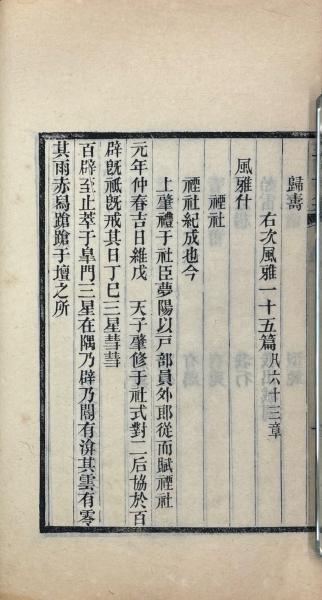 歸壽
右次風雅一十五篇凡六十三章
風雅什
禋社
禋社紀成也今
上肇禮于社臣夢陽以戸部員外郎從而賦禋社
元年仲春吉日維戊　天子肇修于社式對二后協於百
辟旣祗旣戒其日丁巳三星彗彗
百辟至止萃于臯門三星在隅乃辟乃閽有渰其雲有零
其雨赤舄蹌蹌于壇之所